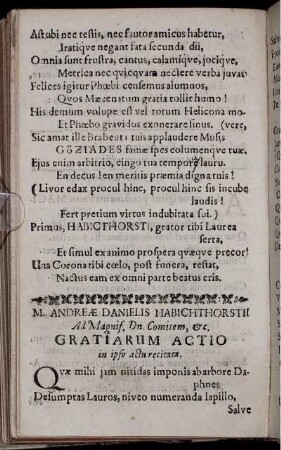 Astubi nec testis, nec fautor amicus habetur,
Iratique negant fata secunda dii,
Omnia sunt frustra, cantus, calamique, jocique,
Metrica nec quicquam nectere verba juvat
Felices igitur Phœbi censemus alumnos,
Quos Mæcenatum gratia tollit humo!
His demum volupe est vel totum Helicona mo-
Et Phœbo gravidos exonerare sinus. (vere,
Sic amat ille Brabeuta tuis applaudere Musis
GGZIADES famæ spes columenque tuæ.
Ejus enim arbitrio, cingo tua tempora lauru.
En decus! en meritis præmia digna tuis!
(Livor edax procul hinc, procul hinc sis incube
laudis!
Fert pretium virtus indubitata sui.)
Primus, HABICTHORSTI, grator tibi Laurea
serta,
Et simul ex animo prospera quæque precor!
Una Corona tibi cœlo, post funera, restat,
Nactus eam ex omni parte beatus eris.
M. ANDREÆ DANIELIS HABICHTHORSTII
Ad Magnif. Dn. Comitem, &c.
GRATIARUM ACTIO
in ipso actu recitata.
Quæ mihi jam nitidas imponis ab arbore Da-
phnes
Desumptas Lauros, niveo numeranda lapillo,
Salve